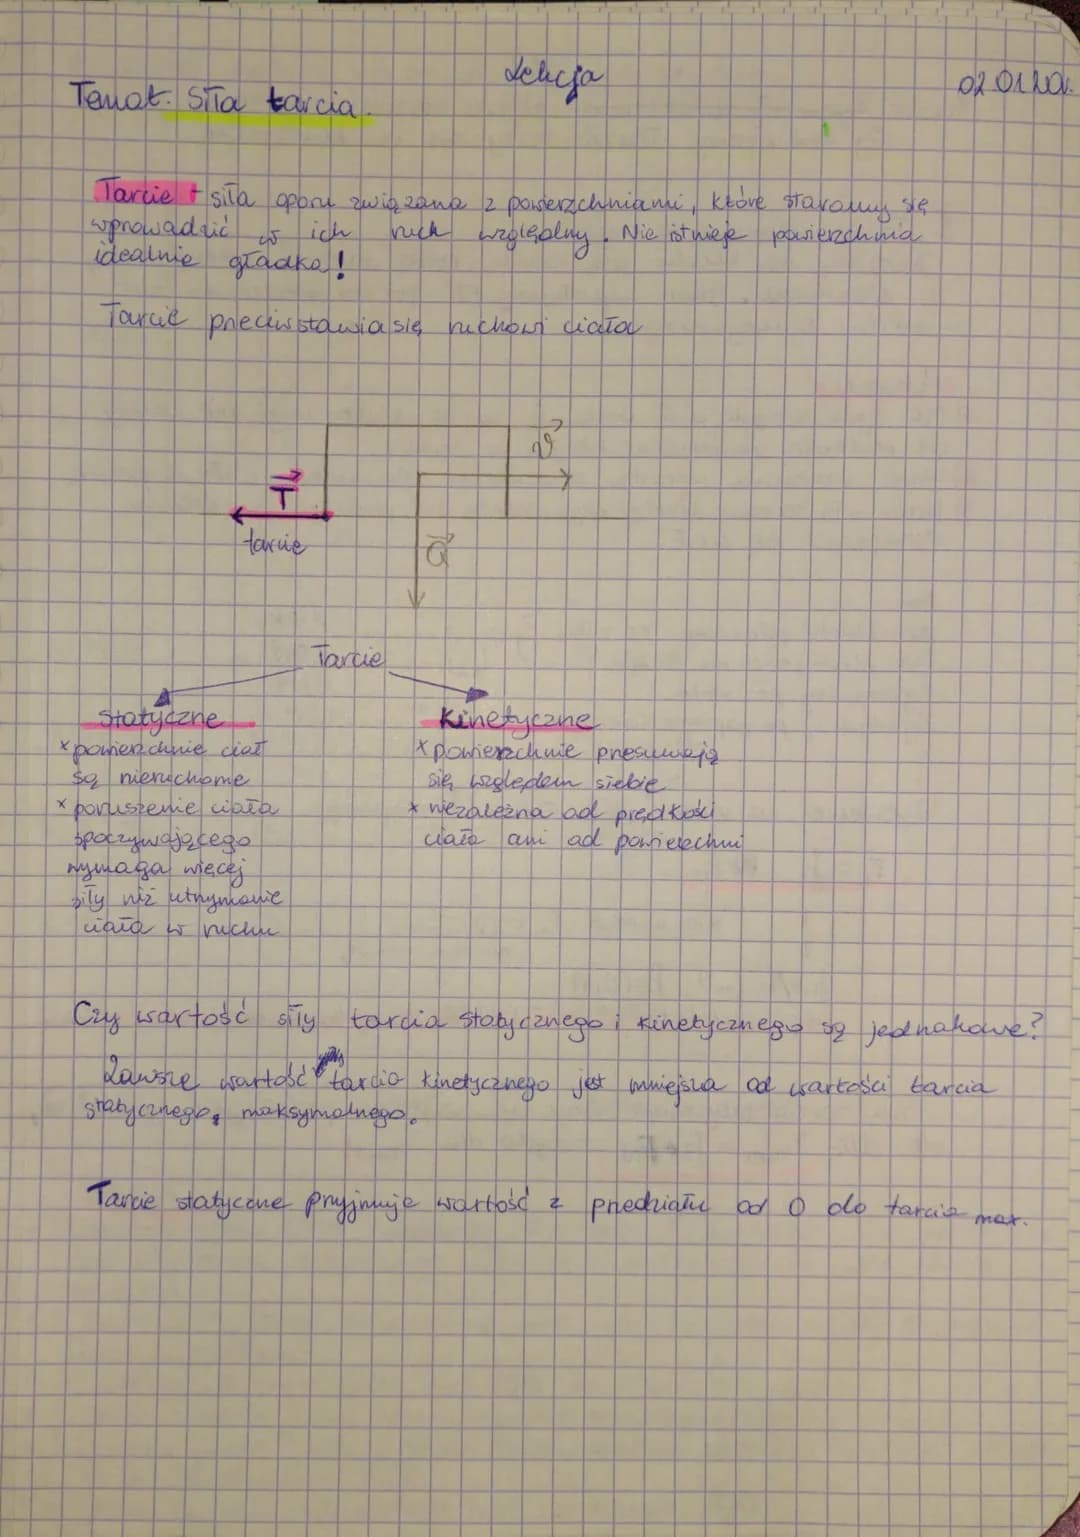 Lekcja
02.01.20r.
Temat: Siła tarcia.
Tarcie + siła oporu związana z powierzchniami, które staramy się
wprowadzić w ich ruch względny. Nie istnieje powierzchnia
idealnie gładka!
Tarcie przeciwstawia się ruchowi ciała
v
T
tarcie
Q
Tarcie
statyczne
x powierzchnie ciał
są nieruchome
x poruszenie ciała
spoczywającego
wymaga więcej
siły niż utrzymanie
ciała w ruchu
Kinetyczne
x powierzchnie przesuwają
się względem siebie
x niezależna od prędkości
ciała ani od powierzchni
Czy wartość siły tarcia statycznego i kinetycznego są jednakowe?
Zawsze wartość tarcia kinetycznego jest mniejsza od wartości tarcia
statycznego, maksymalnego.
Tarcie statyczne przyjmuje wartość z przedziału od 0 do tarcia max.